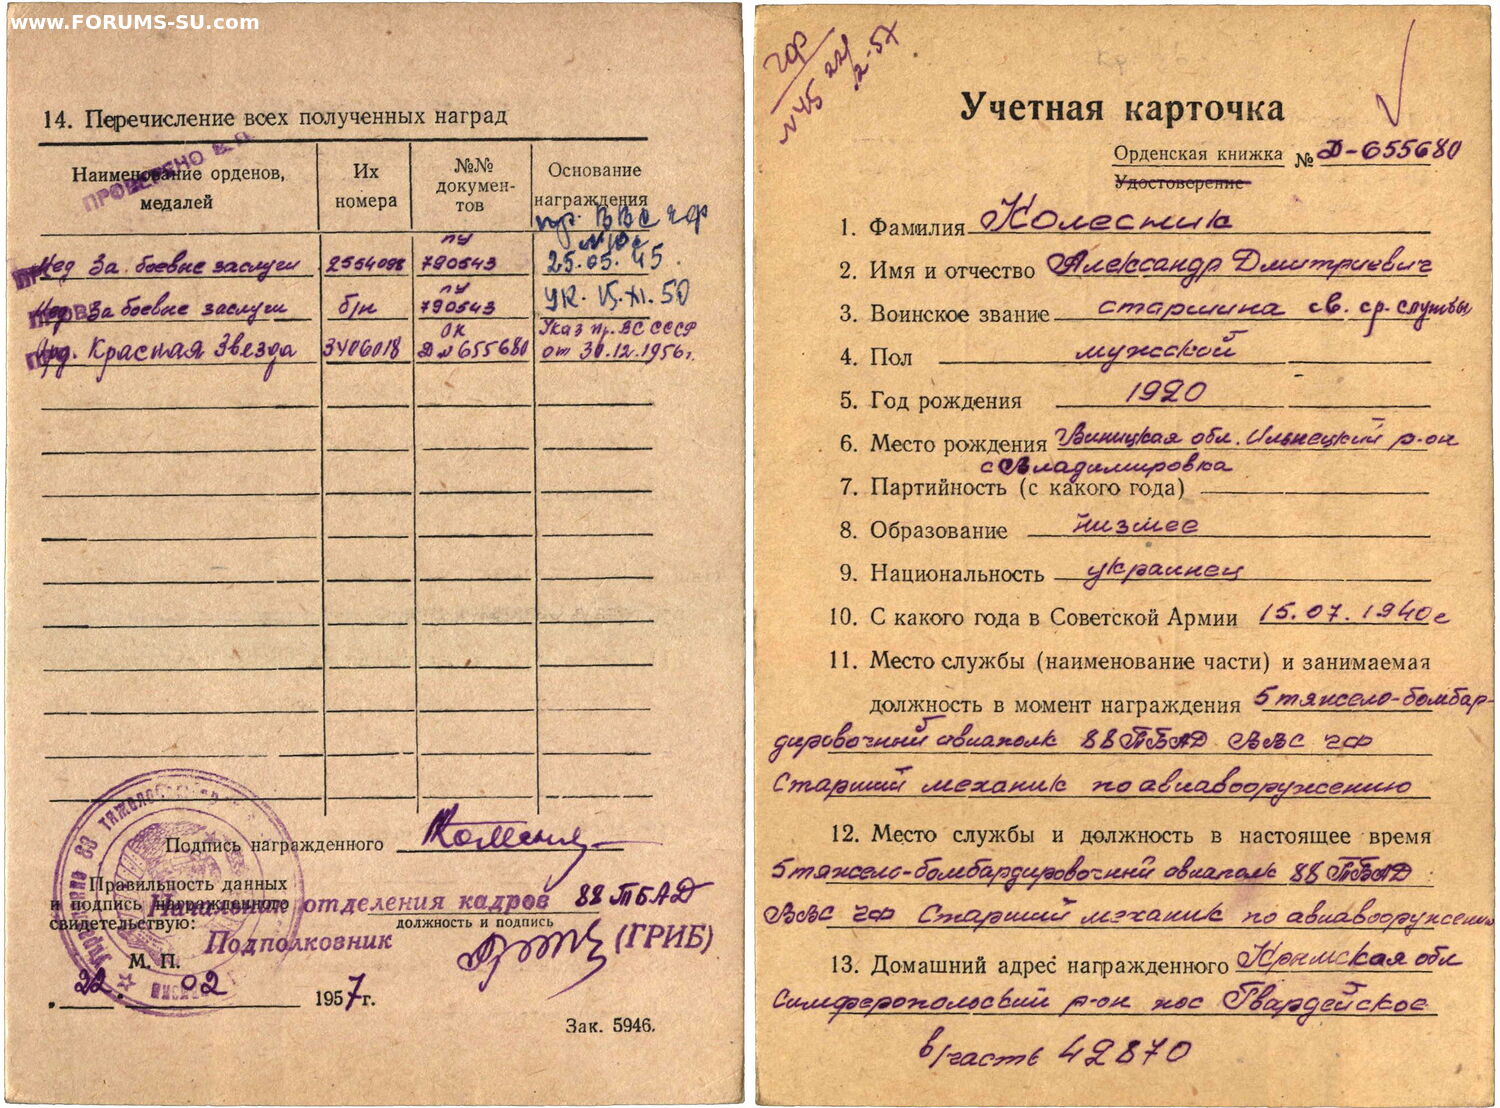 www.FORUMS-SU.com
14. Перечисление всех полученных наград
ПРОВЕРЕНО
Наименование орденов, медалей
Их номера
№№ документов
Основание награждения
пр. ВВС ЧФ
Мед За боевые заслуги 2554098 ПУ 790543 25.05.45
Мед. За боевые заслуги б/н ПУ 790543 Ук. 15.XI.50
Орд. Красная Звезда 3406018 ОК Д № 655680 Указ Пр. ВС СССР от 30.12.1956г.
Подпись награжденного
Правильность данных
и подпись награжденного
свидетельствую:
Начальник отделения кадров 88 ТБАД
должность и подпись
Подполковник (ГРИБ)
М. П.
22. 02 1957 г.
Зак. 5946.
ЧФ
№45 22/2-57
Учетная карточка
Орденская книжка № Д-655680
Удостоверение
1. Фамилия Колесник
2. Имя и отчество Александр Дмитриевич
3. Воинское звание старшина св. ср. службы
4. Пол мужской
5. Год рождения 1920
6. Место рождения Виницкая обл. Ильнецкий р-он
с Владимировка
7. Партийность (с какого года)
8. Образование низшее
9. Национальность украинец
10. С какого года в Советской Армии 15.07.1940г
11. Место службы (наименование части) и занимаемая
должность в момент награждения 5 тяжело-бомбар-
дировочный авиаполк 88 ТБАД ВВС ЧФ
Старший механик по авиавооружению
12. Место службы и должность в настоящее время
5 тяжело-бомбардировочный авиаполк 88 ТБАД
ВВС ЧФ Старший механик по авиавооружению
13. Домашний адрес награжденного Крымская обл
Симферопольский р-он пос Гвардейское
в/часть 42870